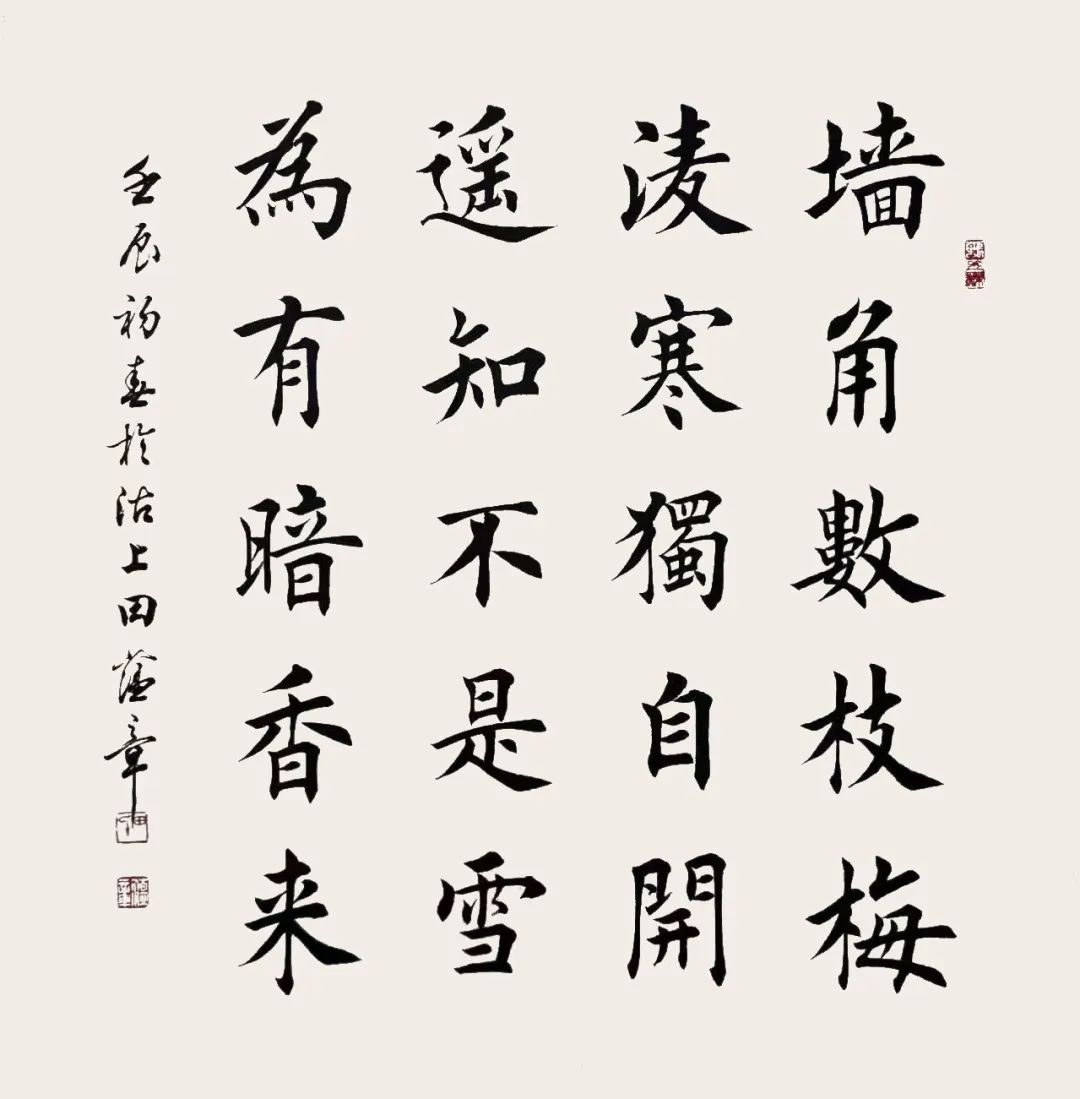 墙角數枝梅
淩寒獨自開
遥知不是雪
為有暗香来
壬辰初春於沽上田蕴章